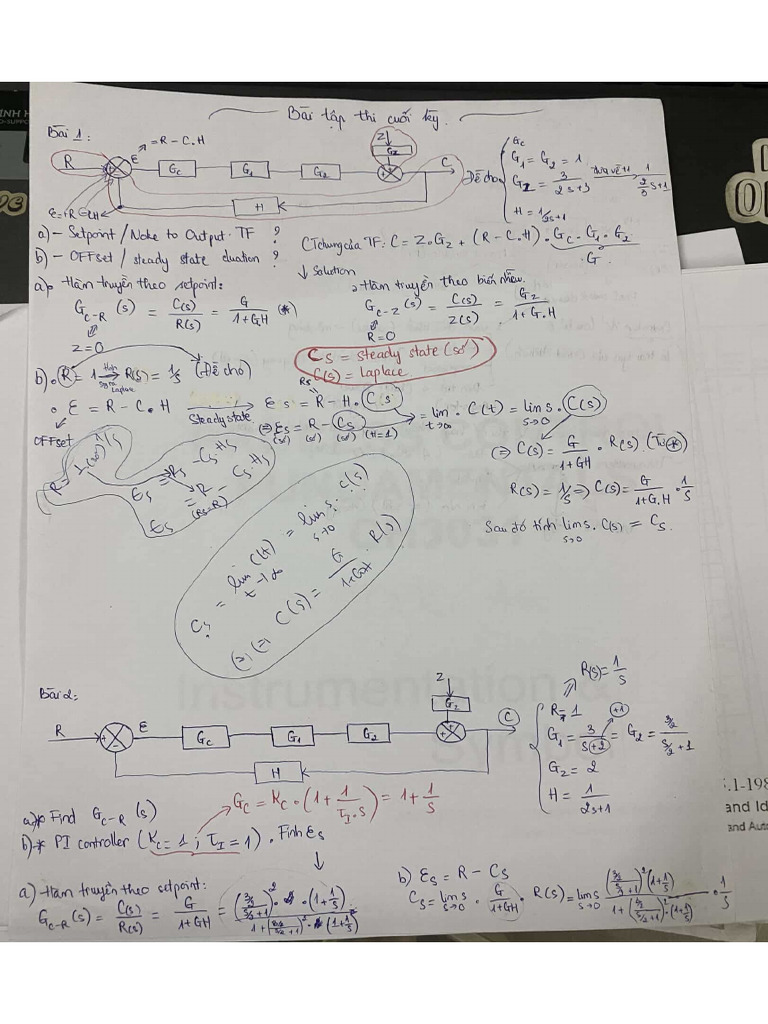 Bài tập thi cuối kỳ.
Bài 1:
E = R - C.H
R
Gc
G1
G2
Z
Gz
C
H
Đề cho
Gc
G1 = G2 = 1
Gz = 3/(2s+3)
H = 1/(2s+1)
a) - Setpoint / Noke to Output. TF ?
b) - OFFset / steady state duation ?
CT chung của TF: C = Z.Gz + (R - C.H).Gc.G1.G2
G
↓ Solution
a) Hàm truyền theo setpoint:
Gc-R (s) = C(s)/R(s) = G/(1+GH) (*)
Z=0
Hàm truyền theo biến nhiễu.
Gc-z (s) = C(s)/Z(s) = Gz/(1+G.H)
R=0
Cs = steady state (số)
C(s) = Laplace
b) R = 1 → R(s) = 1/s (Đề cho)
Laplace
E = R - C.H
Steady state
OFFset
Es = R - H.Cs
Rs
⇒ Es = R - Cs
(số) (số) (số) (H=1)
= lim t→∞ . C(t) = lim s→0 s. C(s)
(=) C(s) = G/(1+GH) . R(s) (Từ *)
R(s) = 1/s ⇒ C(s) = G/(1+G.H) . 1/s
Sau đó tính lim s→0 s. C(s) = Cs.
Es = Rs - Cs Hs
Es = R - Cs Hs
(Rs=R)
Cs = lim t→∞ C(t) = lim s→0 s. C(s)
(=) C(s) = G/(1+GH) . R(s)
Bài 2:
R
E
Gc
G1
G2
Z
Gz
C
H
R(s) = 1/s
R = 1
G1 = 3/(s+2) = G2 = (3/2)/(s/2+1)
+1
Gz = 2
H = 1/(2s+1)
a)* Find Gc-R (s)
Gc = Kc.(1 + 1/(τI.s)) = 1 + 1/s
b)* PI controller (Kc = 1; τI = 1). Tính Es
a) Hàm truyền theo setpoint:
Gc-R (s) = C(s)/R(s) = G/(1+GH) = ((3/2)/(s/2+1))².(1+1/s) / (1+((3/2)/(s/2+1))².(1+1/s))
b) Es = R - Cs
Cs = lim s→0 . G/(1+GH) . R(s) = lim s→0 ((3/2)/(s/2+1))²(1+1/s) / (1+((3/2)/(s/2+1))².(1+1/s)) . 1/s
and Id
and Aut